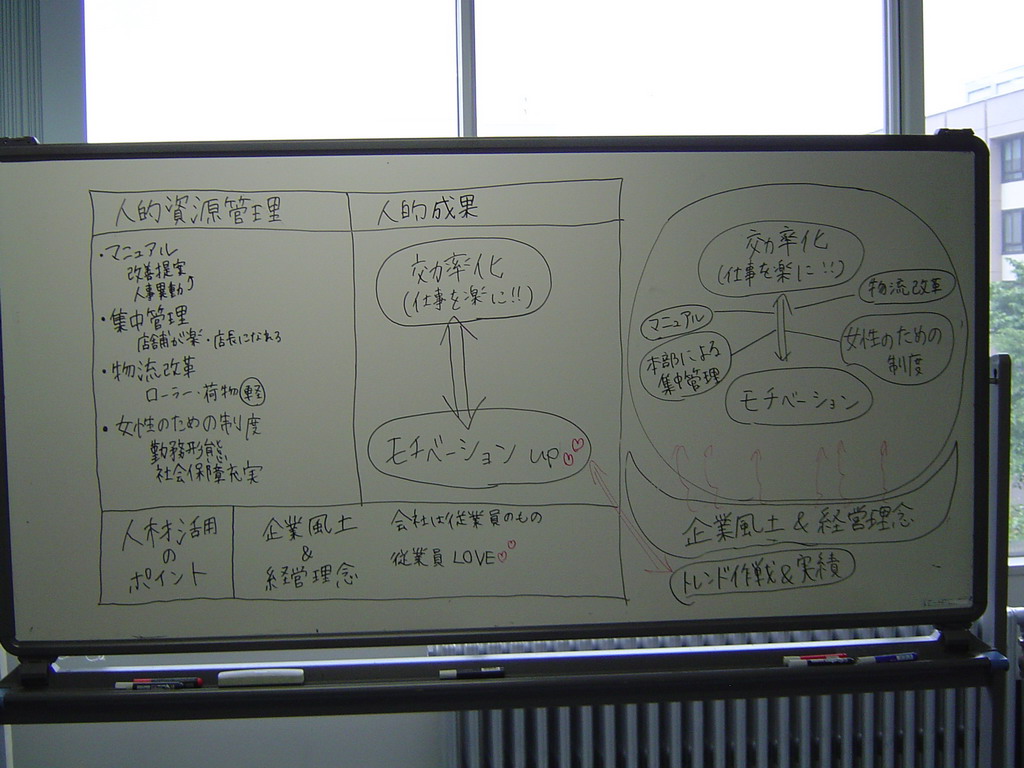 人的資源管理
人的成果
・マニュアル
改善提案
人事異動
・集中管理
店舗が楽・店長になれる
・物流改革
ローラー・荷物軽
・女性のための制度
勤務形態
社会保障充実
効率化
(仕事を楽に!!)
モチベーション up
人材活用
の
ポイント
企業風土
&
経営理念
会社は従業員のもの
従業員 LOVE
効率化
(仕事を楽に!!)
物流改革
マニュアル
本部による
集中管理
女性のための
制度
モチベーション
企業風土 & 経営理念
トレンド作戦&実績